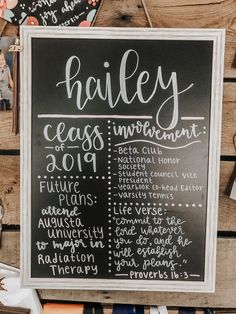 hailey
class
of
2019
Future
Plans:
attend
Augusta
University
to major in
Radiation
Therapy
involvement:
-Beta Club
-National Honor
Society
-Student Council Vice
President
-Yearbook Co-Head Editor
-Varsity Tennis
Life Verse:
"commit to the
Lord whatever
you do, and he
will establish
your plans."
-Proverbs 16:3-